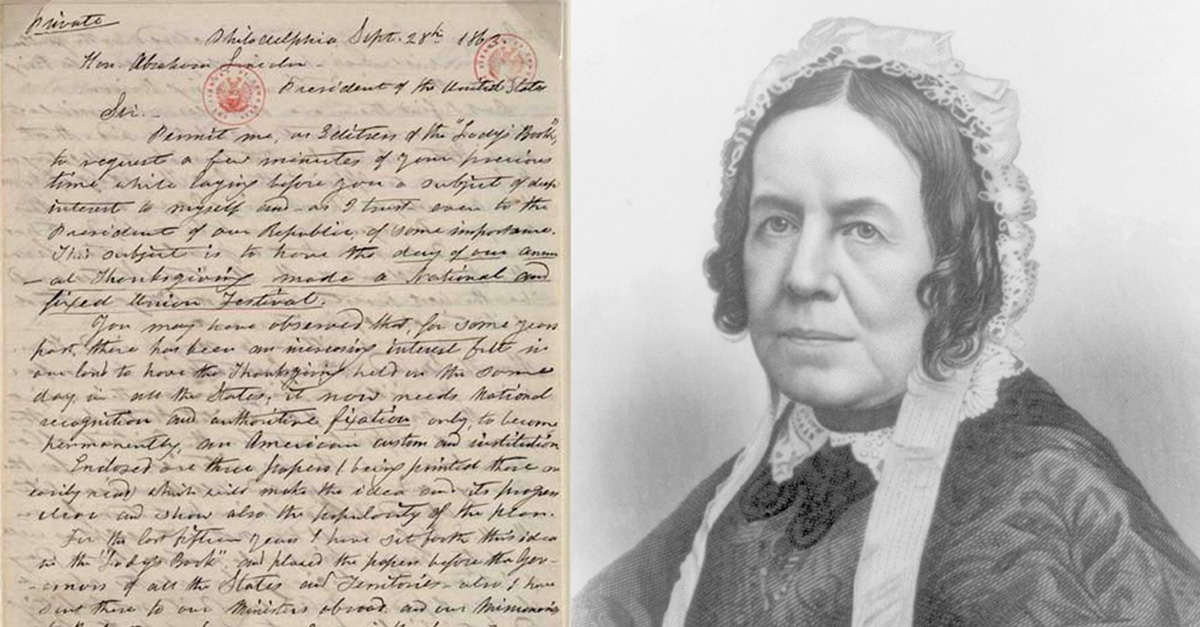 Private
Philadelphia Sept. 28th 1863.
Hon. Abraham Lincoln -
President of the United States
Sir. -
Permit me, as Editress of the "Lady's Book",
to request a few minutes of your precious
time, while laying before you a subject of deep
interest to myself and - as I trust - even to the
President of our Republic, of some importance.
This subject is to have the day of our annu
- al Thanksgiving made a National and
fixed Union Festival.
You may have observed that, for some years
past, there has been an increasing interest felt in
our land to have the Thanksgiving held on the same
day, in all the States; it now needs National
recognition and authoritive fixation, only, to become
permanently, an American custom and institution
Enclosed are three papers (being printed these are
easily read) which will make the idea and its progress
clear and show also the popularity of the plan.
For the last fifteen years I have set forth this idea
in the "Lady's Book", and placed the papers before the Gov-
- ernors of all the States and Territories - also I have
sent these to our Ministers abroad, and our Missionaries